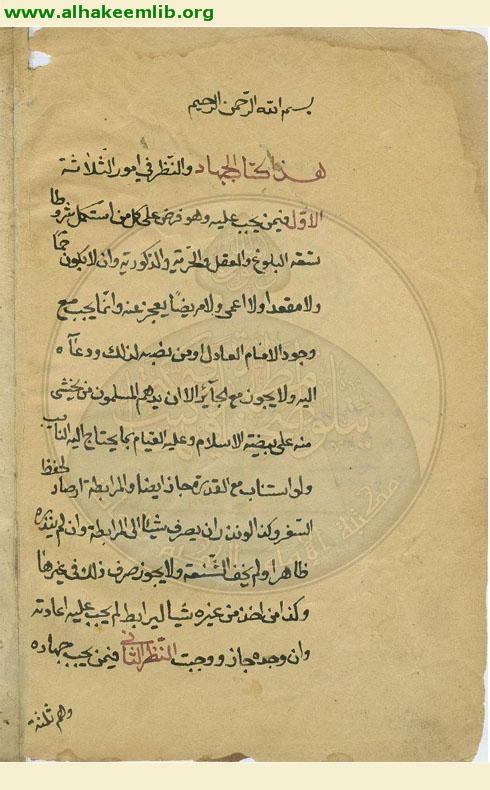 www.alhakeemlib.org
بسم الله الرّحمن الرحيم
هذا كتاب الجهاد والنّظر في امور الثّلاثة
الاوّل فيمن يجب عليه وهو فرض على كل من استكمل شروطا
ستعة البلوغ والعقل والحرّية والذكورية وان لا يكون همّا
ولا مقعدا ولا اعمى ولا مريضًا يعجز عنه وانّما يجب مع
وجود الامام العادل او من نصبه لذلك ودعآه
اليه ولا يجوز مع الجآئر الا ان يدهم المسلمون من يخشى
منه على بيضة الاسلام وعليه القيام بما يحتاج اليه النايب
ولو استناب مع القدرة جاز ايضا والمرابطة ارصاد لحفظ
الثغر وكذا لونذر ان يصرف شيئا الى المرابطة وان لم ينذره
ظاهرا ولم يخف الشّنعة ولا يجوز صرف ذلك في غيرها
وكذا من اخذ من غيره شيئا ليرابط لم يجب عليه اعادته
وان وجده جاز ووجبت النّظر الثّاني فيمن يجب جهاده
وهم ثلثة